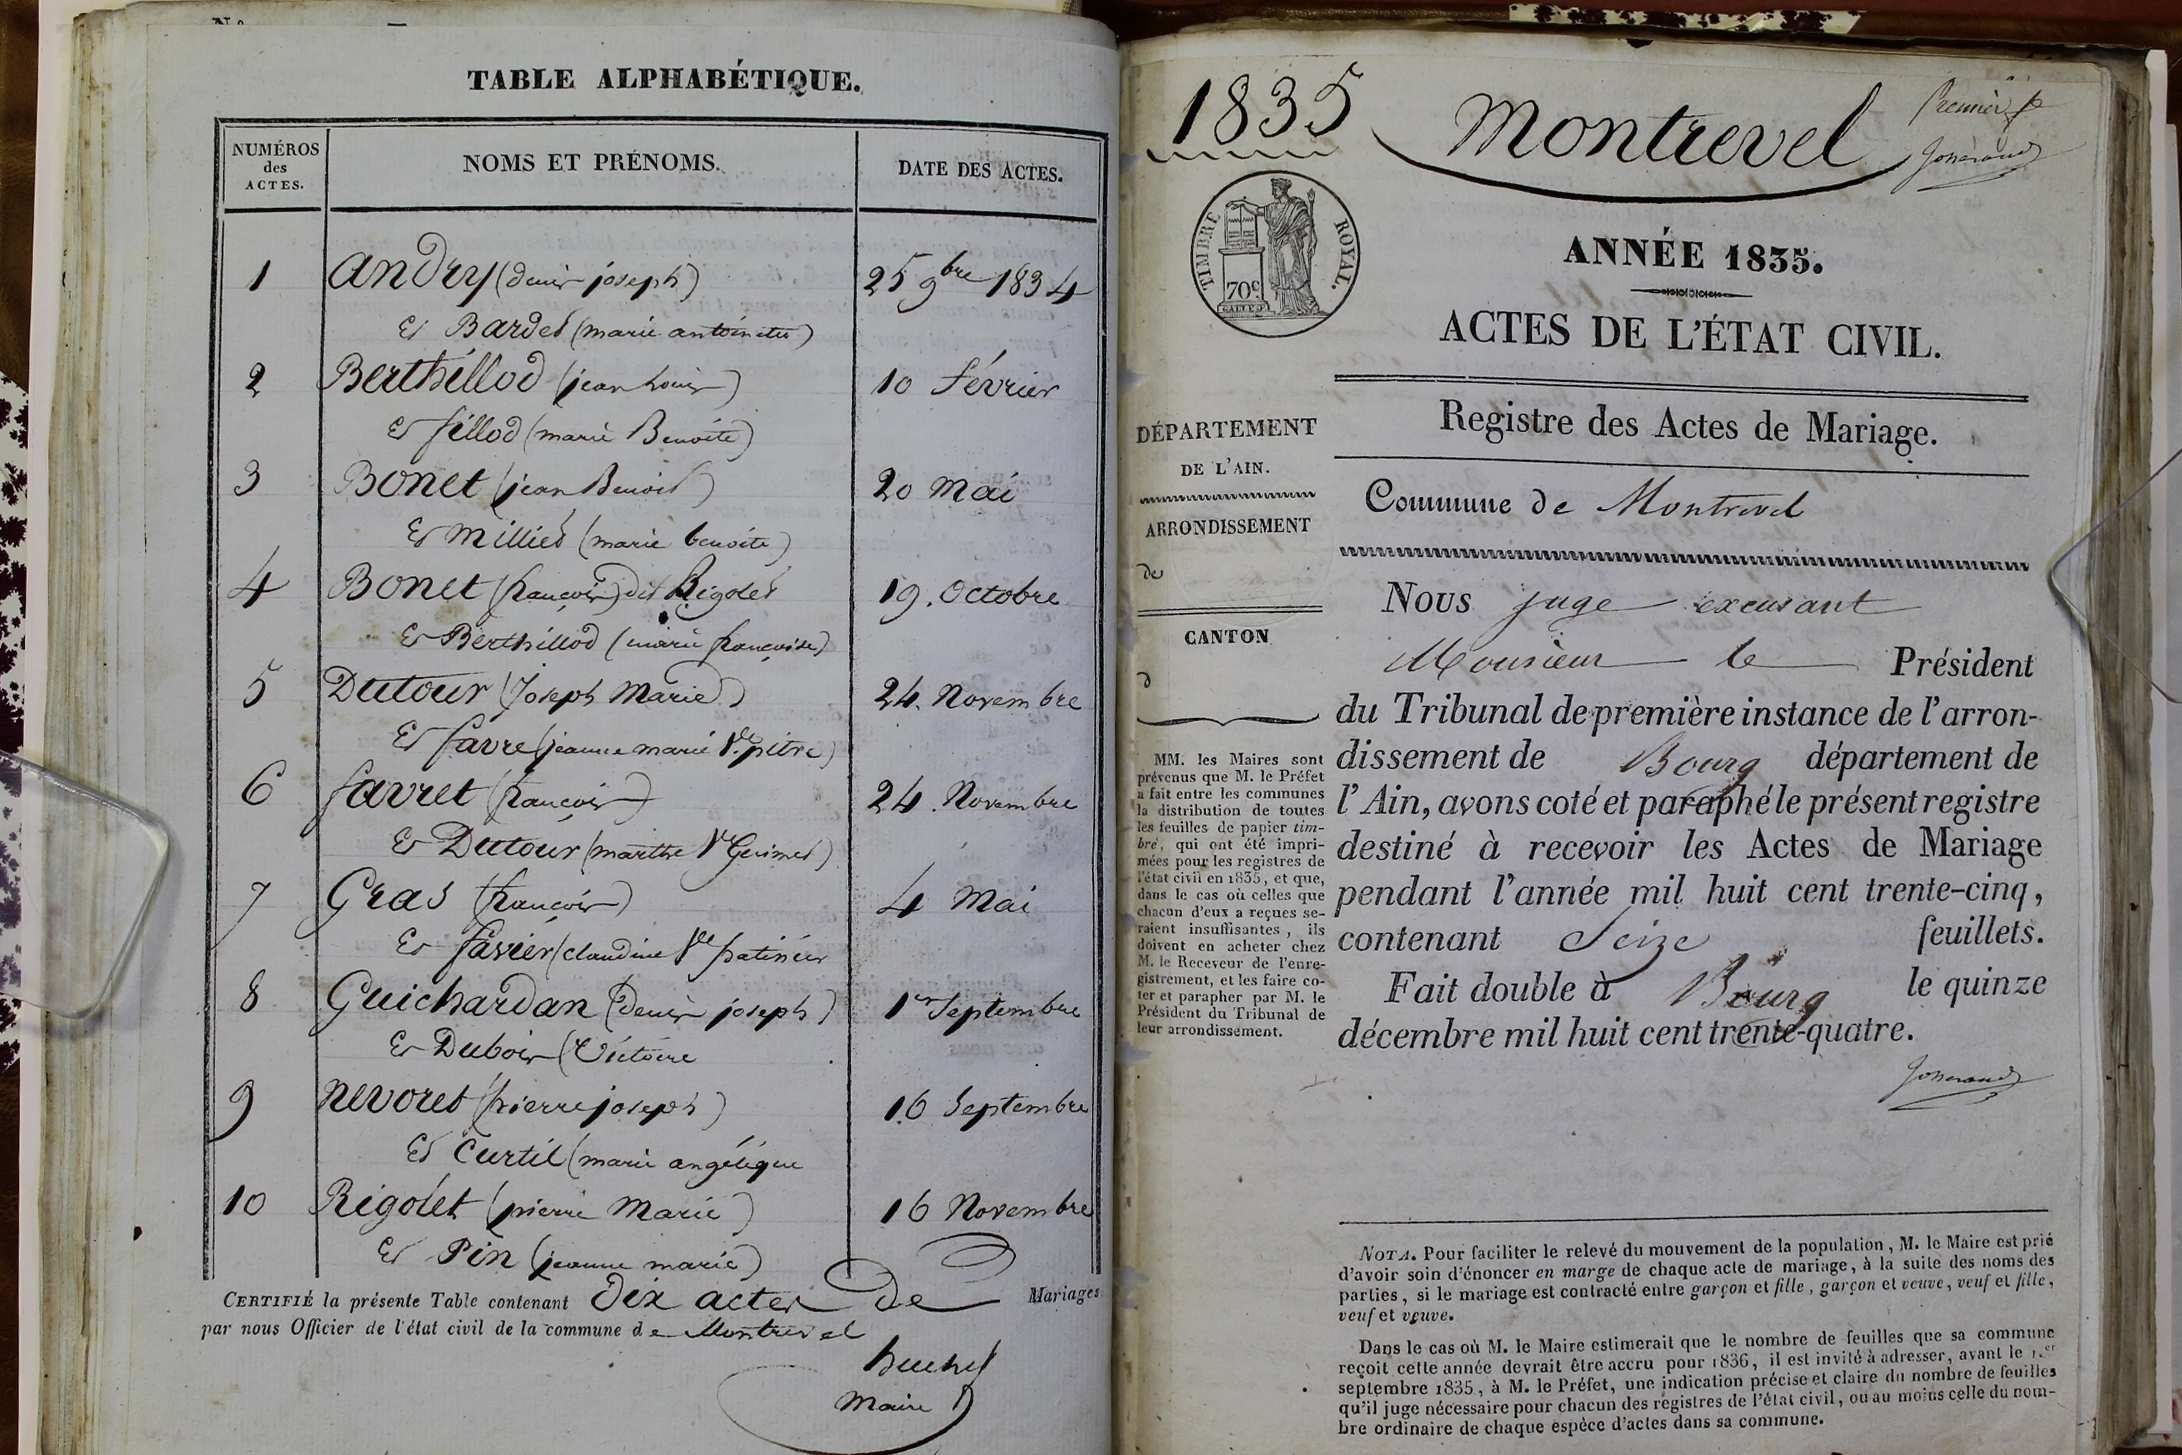 TABLE ALPHABÉTIQUE.
NUMÉROS des ACTES.
NOMS ET PRÉNOMS.
DATE DES ACTES.
1 Andry (denis joseph) 25 9bre 1834
Et Bardet (marie antoinette)
2 Berthillod (jean Louis) 10 février
Et fillod (marie Benoite)
3 Bonet (jean Benoit) 20 Mai
Et Milliet (marie benoite)
4 Bonet (françois) dit Rigolet 19. Octobre
Et Berthillod (marie françoise)
5 Dutour (Joseph Marie) 24. Novembre
Et favre (jeanne marie Ve pitre)
6 favret (françois) 24. Novembre
Et Dutour (marthe Ve Guimet)
7 Gras (françois) 4 Mai
Et favier (claudine Ve
8 Guichardan (denis joseph) 1er Septembre
Et Dubois (Victoire
9 Nevoret (pierre joseph) 16 Septembre
Et Curtil (marie angélique
10 Rigolet (pierre Marie) 16 Novembre
Et Pin (jeanne marie)
CERTIFIÉ la présente Table contenant Dix actes de Mariages
par nous Officier de l'état civil de la commune de Montrevel
Maire
1835 Montrevel
Premier
TIMBRE ROYAL.
70c
ANNÉE 1835.
ACTES DE L'ÉTAT CIVIL.
Registre des Actes de Mariage.
DÉPARTEMENT
DE L'AIN.
ARRONDISSEMENT
de
CANTON
d
MM. les Maires sont
prévenus que M. le Préfet
a fait entre les communes
la distribution de toutes
les feuilles de papier tim-
bré, qui ont été impri-
mées pour les registres de
l'état civil en 1835, et que,
dans le cas où celles que
chacun d'eux a reçues se-
raient insuffisantes, ils
doivent en acheter chez
M. le Receveur de l'enre-
gistrement, et les faire co-
ter et parapher par M. le
Président du Tribunal de
leur arrondissement.
Commune de Montrevel
Nous juge excusant
Monsieur le Président
du Tribunal de première instance de l'arron-
dissement de Bourg département de
l'Ain, avons coté et paraphé le présent registre
destiné à recevoir les Actes de Mariage
pendant l'année mil huit cent trente-cinq,
contenant Seize feuillets.
Fait double à Bourg le quinze
décembre mil huit cent trente-quatre.
NOTA. Pour faciliter le relevé du mouvement de la population, M. le Maire est prié
d'avoir soin d'énoncer en marge de chaque acte de mariage, à la suite des noms des
parties, si le mariage est contracté entre garçon et fille, garçon et veuve, veuf et fille,
veuf et veuve.
Dans le cas où M. le Maire estimerait que le nombre de feuilles que sa commune
reçoit cette année devrait être accru pour 1836, il est invité à adresser, avant le 1.er
septembre 1835, à M. le Préfet, une indication précise et claire du nombre de feuilles
qu'il juge nécessaire pour chacun des registres de l'état civil, ou au moins celle du nom-
bre ordinaire de chaque espèce d'actes dans sa commune.